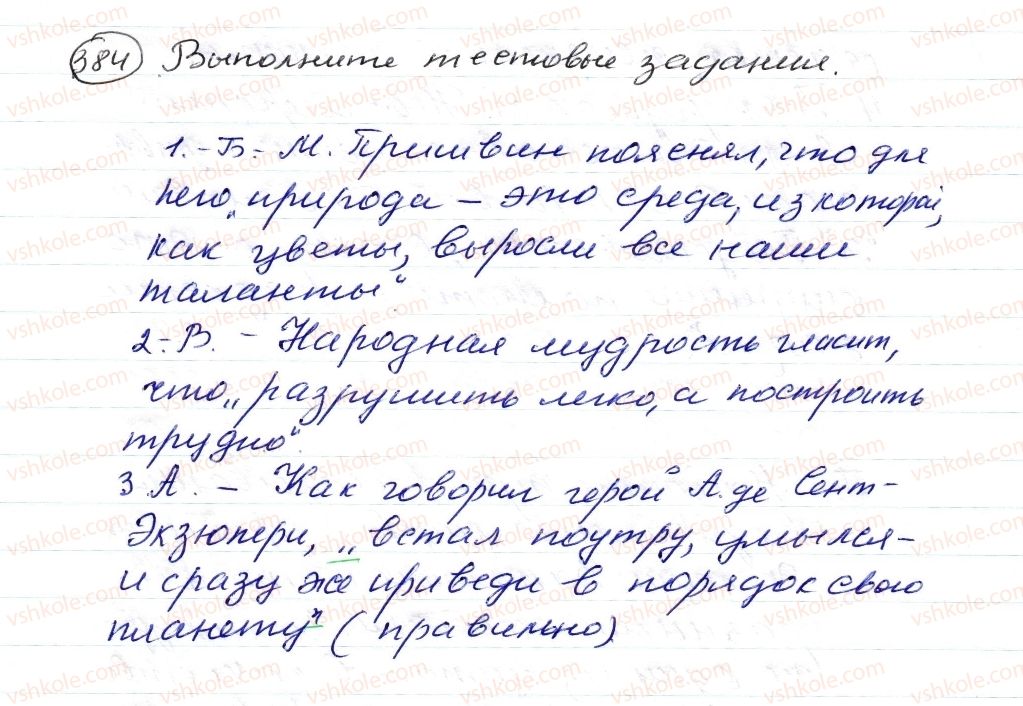 384 Выполните тестовые задания.
1.-Б.- М. Пришвин пояснял, что для
него „природа – это среда, из которой,
как цветы, выросли все наши
таланты“
2.-В. – Народная мудрость гласит,
что „разрушить легко, а построить
трудно“.
3 А. – Как говорил герой А. де Сент-
Экзюпери, „встал поутру, умылся –
и сразу же приведи в порядок свою
планету“ (правильно)